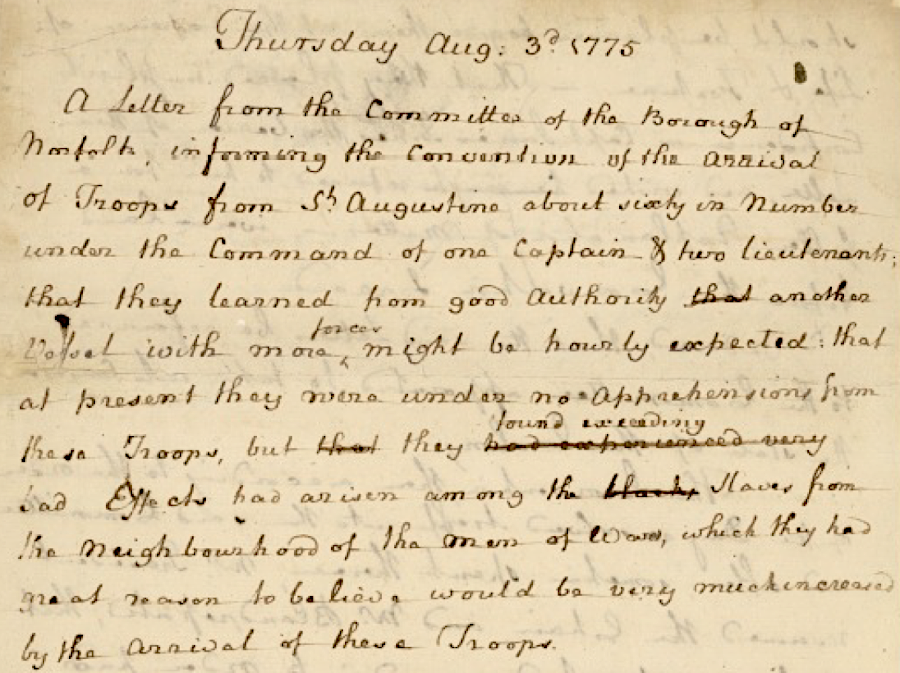 Thursday Aug: 3d. 1775
A Letter from the Committee of the Borough of
Norfolk, informing the Convention of the arrival
of Troops from St. Augustine about sixty in Number
under the Command of one Captain & two lieutenants;
that they learned from good Authority that another
forces
Vessel with more ^ might be hourly expected: that
at present they were under no Apprehensions from
found exceeding
these Troops, but that they had experienced very
bad Effects had arisen among the blacks Slaves from
the Neighbourhood of the men of War, which they had
great reason to believe would be very much increased
by the arrival of these Troops.